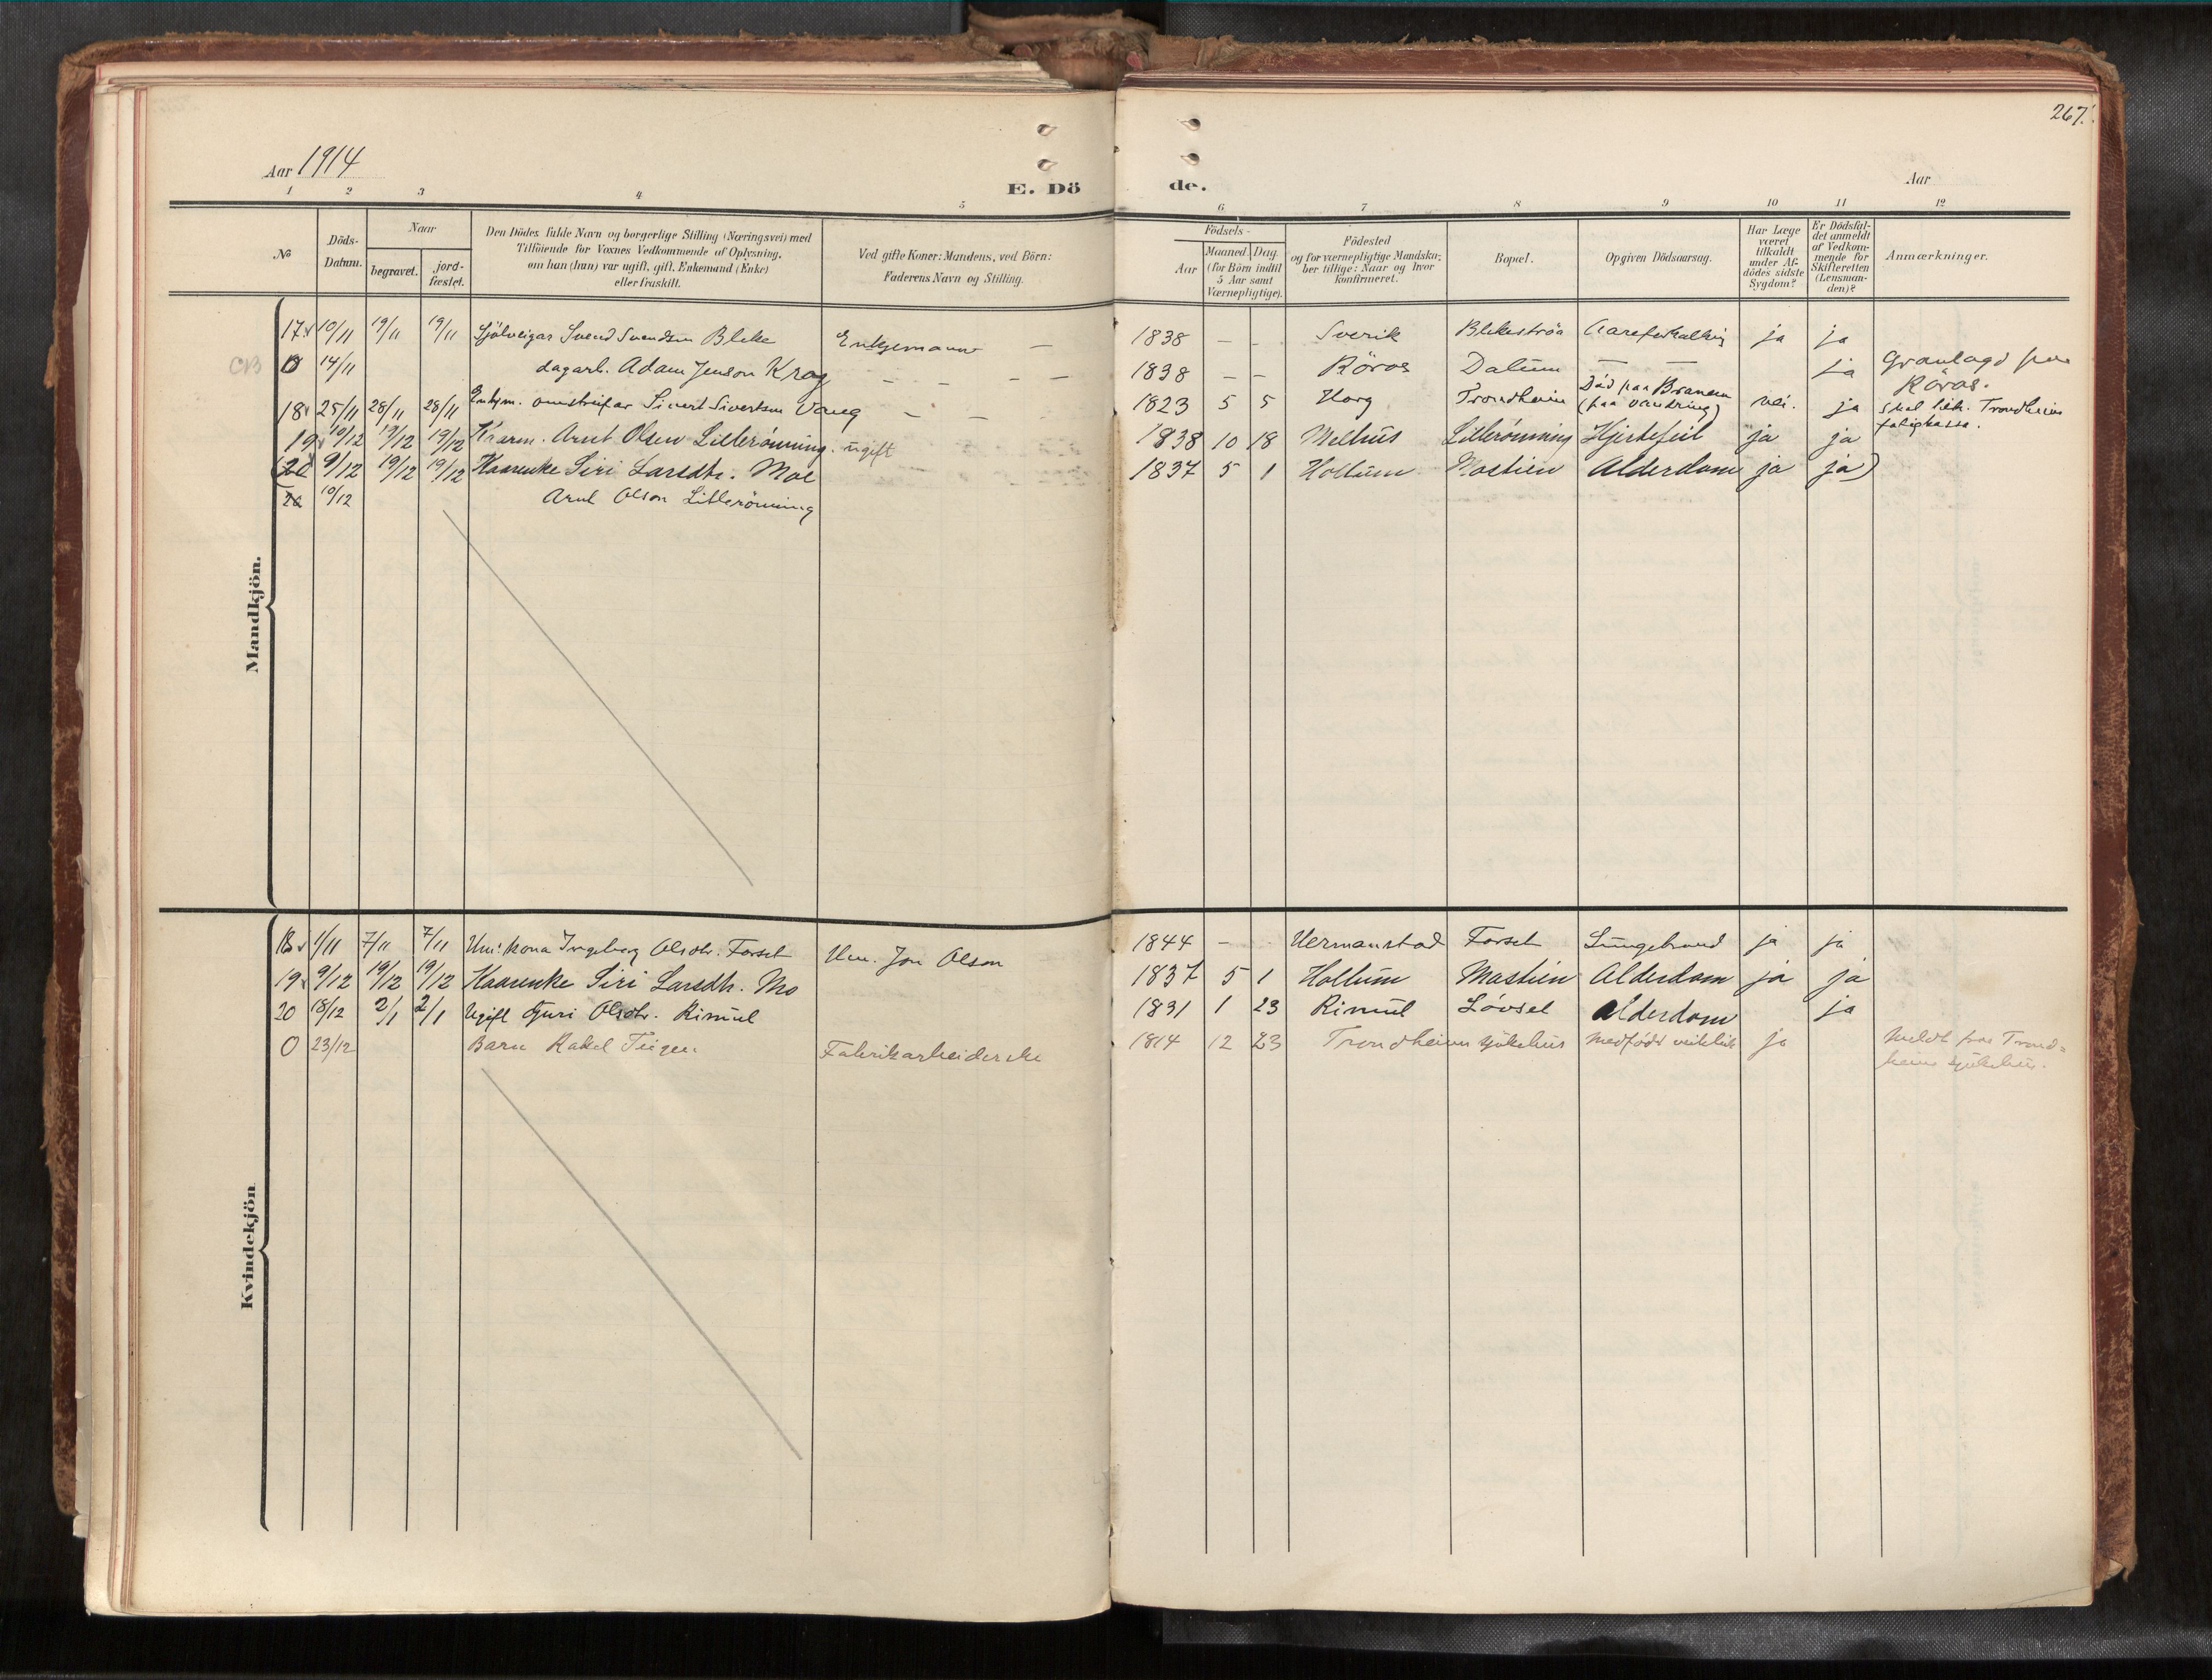 267.
Aar 1914
E. Dö de.
Aar
1 2 3 4 5 6 7 8 9 10 11 12
№
Döds-Datum.
Naar
begravet.
jord-fæstet.
Den Dödes fulde Navn og borgerlige Stilling (Næringsvei) med
Tilföiende for Voxnes Vedkommende af Oplysning,
om han (hun) var ugift, gift, Enkemand (Enke)
eller fraskilt.
Ved gifte Koner: Mandens, ved Börn:
Faderens Navn og Stilling.
Födsels-
Aar
Maaned. Dag.
(for Börn indtil
5 Aar samt
Værnepligtige).
Födested
og for værnepligtige Mandska-
ber tillige: Naar og hvor
konfirmeret.
Bopæl.
Opgiven Dödsaarsag.
Har Læge
været
tilkaldt
under Af-
dödes sidste
Sygdom?
Er Dödsfal-
det anmeldt
af Vedkom-
mende for
Skifteretten
(Lensman-
den)?
Anmærkninger.
Mandkjön.
17 10/11 19/11 19/11 Sjölveigar Svend Svendsen Bleke Enkjemann — 1838 — — Sverik Blekeströa Aareforkalking ja ja
CB 0 14/11 dagarb. Adam Jenson Krag — — — — 1838 — — Röros Dalum — — ja Gravlagd paa
Röros.
18 25/11 28/11 28/11 Enkjm. omstreifar Sivert Sivertsen Vaug — — — 1823 5 5 Horg Trondheim Död paa Branem
(paa vandring) nei. ja skal tilh. Trondheims
fatigkassa.
19 10/12 19/12 19/12 Kaarm. Arnt Olsen Lillerönning. ugift 1838 10 18 Melhus Lillerönning Hjertefeil ja ja
(20 9/12 19/12 19/12 Kaarenke Siri Larsdtr. Moe 1837 5 1 Hollum Mostien Alderdom ja ja)
20 10/12 Arnt Olson Litlerönning
Kvindekjön
18 1/11 7/11 7/11 Hm: kona Ingeborg Olsdtr. Forset Hm. Jon Olson 1844 — Hermanstad Forset Lungebrand ja ja
19 9/12 19/12 19/12 Kaarenke Siri Larsdtr. Mo 1837 5 1 Hollum Mostien Alderdom ja ja
20 18/12 2/1 2/1 Ugift Guri Olsdtr. Rimul 1831 1 23 Rimul Lövset Alderdom ja
0 23/12 Barn Rakel Teigen Fabrikarbeiderske 1814 12 23 Trondheims sjukehus medfödt veikleik ja meldt fraa Trond=
heims sjukehus.